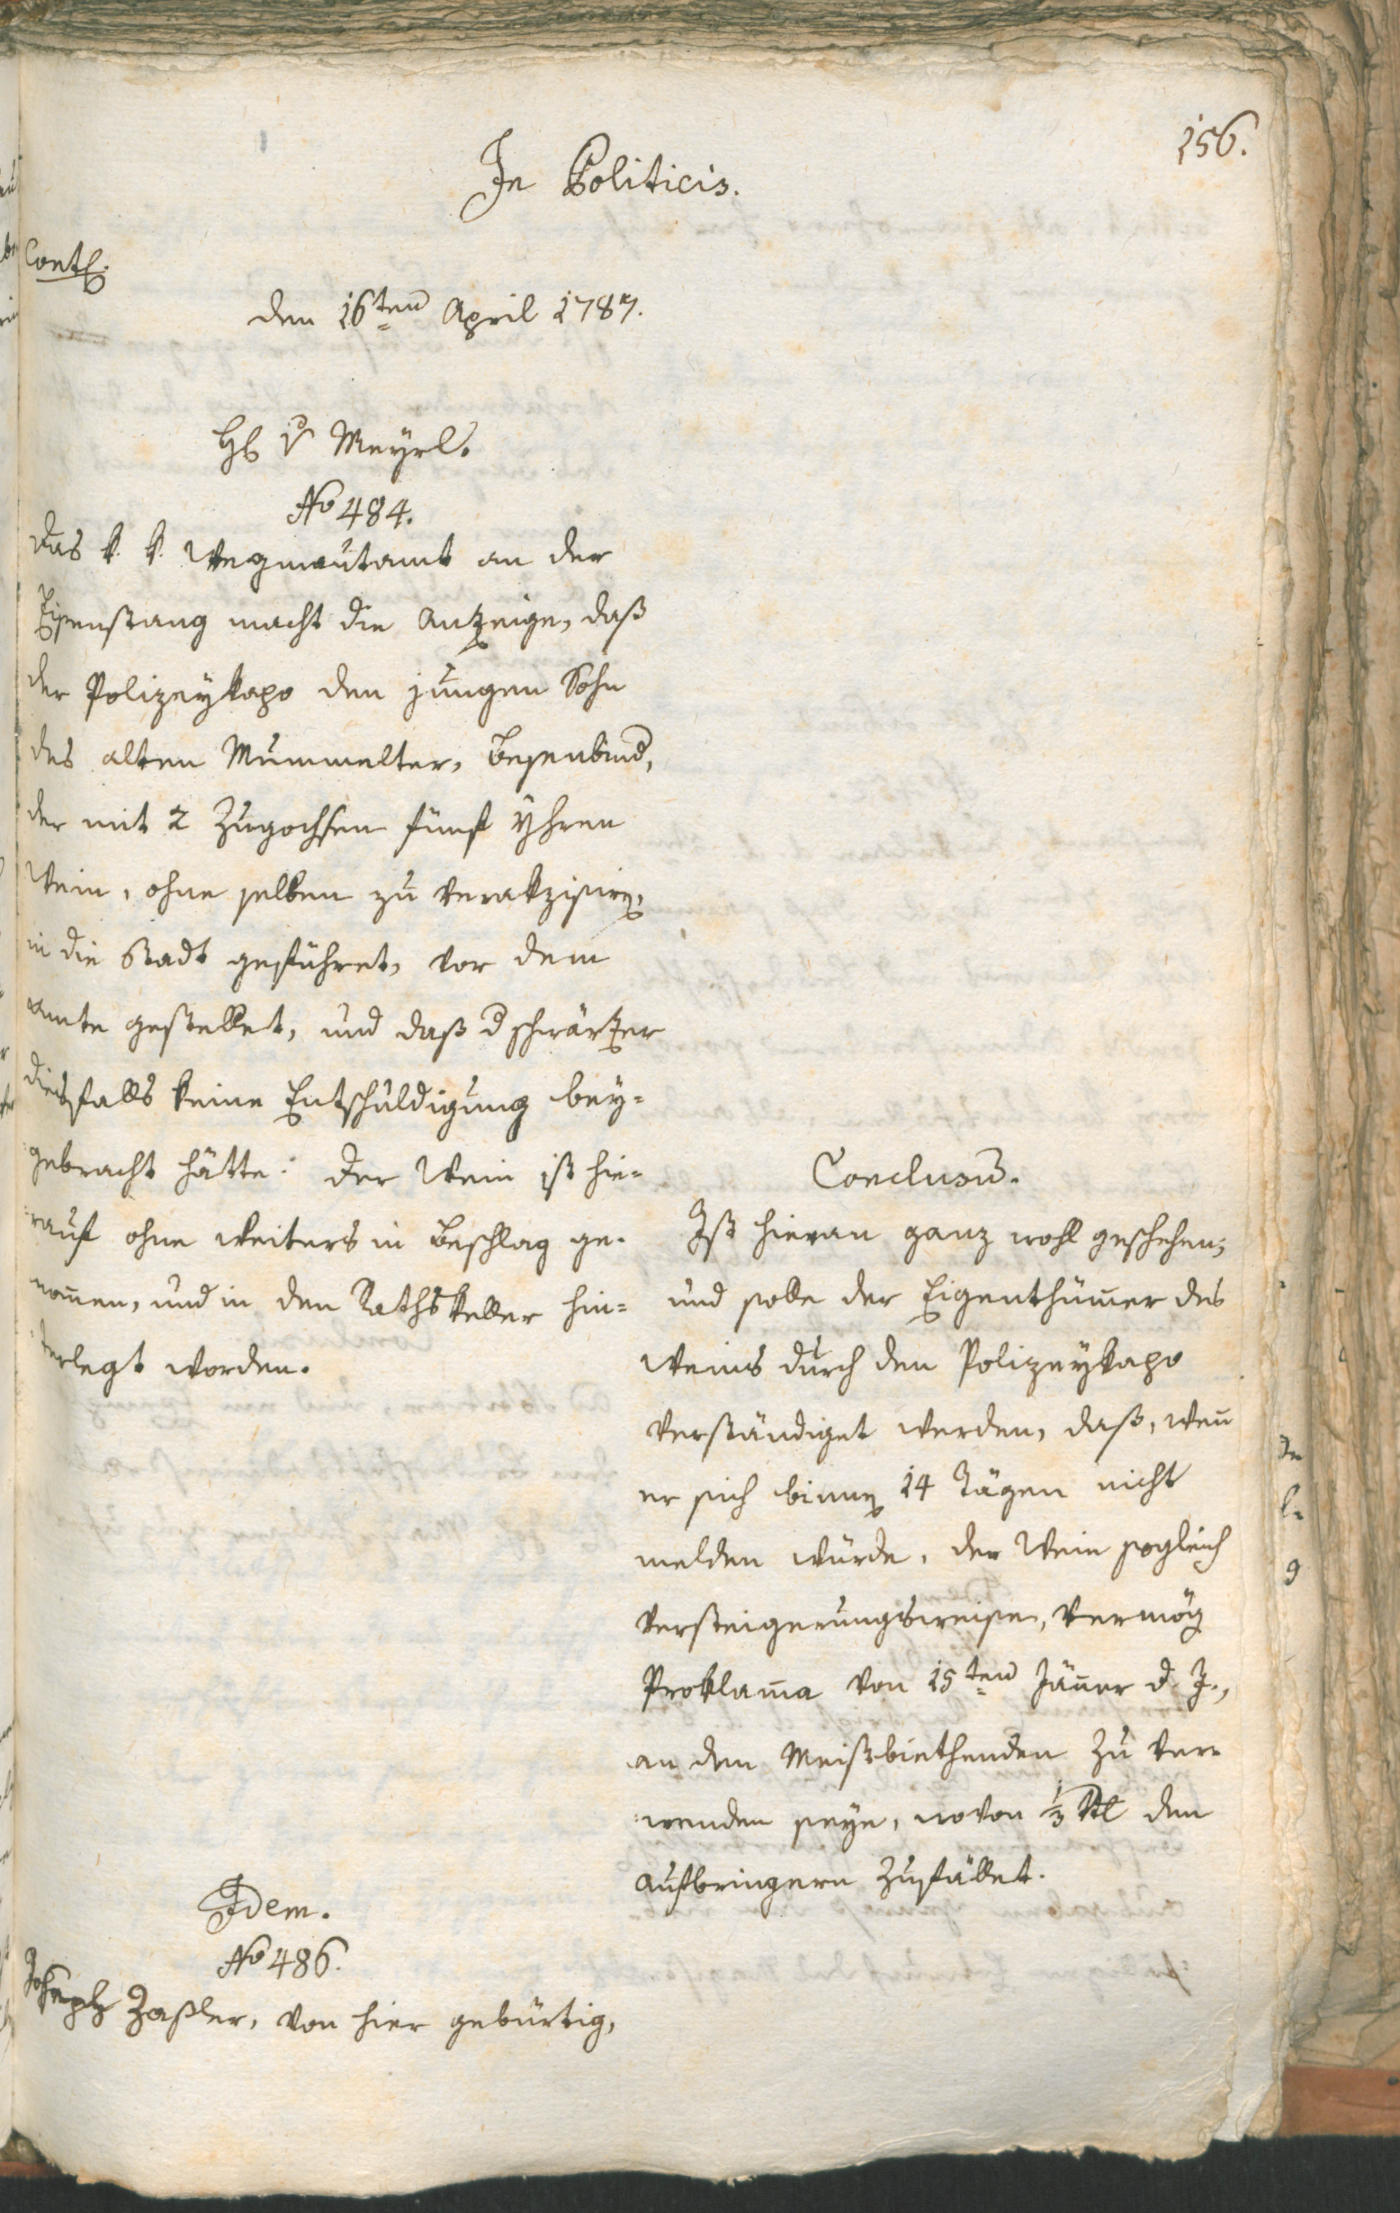 156.
In Politicis.
Cont.
den 16ten April 1787.
H v Meyrl.
No 484.
Das k. k. Wegmautamt an der
Eisenstang macht die Anzeige, daß
der Polizeykapo den jungen Sohn
des alten Mummelter, Besenbind,
der mit 2 Zugochsen fünf Yhren
Wein, ohne selben zu verakzisirn,
in die Stadt geführet, vor dem
Amte gestellet, und daß d Schwärzer
diesfalls keine Entschuldigung bey-
gebracht hätte: der Wein ist hie-
rauf ohne weiters in Beschlag ge-
nommen, und in den Rathskeller hin-
terlegt worden.
Conclusum.
Ist hieran ganz wohl geschehen;
und solle der Eigenthümer des
Weins durch den Polizeykapo
verständiget werden, daß, wenn
er sich binnen 14 Tägen nicht
melden würde, der Wein sogleich
versteigerungsweise, vermög
Proklama von 15ten Jänner d. J.,
an dem Meistbiethenden zu ver-
wenden seye, wovon 1/3 tl den
Aufbringern zufället.
Idem.
No 486.
Joseph Zaßler, von hier gebürtig,